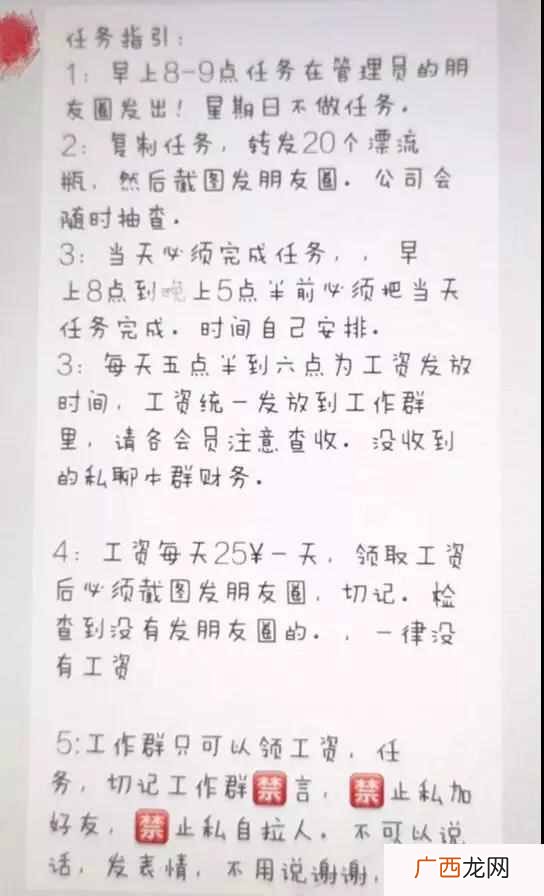 任务指引：
1：早上8-9点任务在管理员的朋
友圈发出！星期日不做任务．
2：复制任务，转发20个漂流
瓶，然后截图发朋友圈．公司会
随时抽查．
3：当天必须完成任务，，早
上8点到晚上5点半前必须把当天
任务完成．时间自己安排．
3：每天五点半到六点为工资发放
时间，工资统一发放到工作群
里，请各会员注意查收．没收到
的私聊本群财务．
4：工资每天25¥一天，领取工资
后必须截图发朋友圈，切记．检
查到没有发朋友圈的．，一律没
有工资
5:工作群只可以领工资，任
务，切记工作群🈲言，🈲止私加
好友，🈲止私自拉人．不可以说
话，发表情，不用说谢谢，
广西龙网